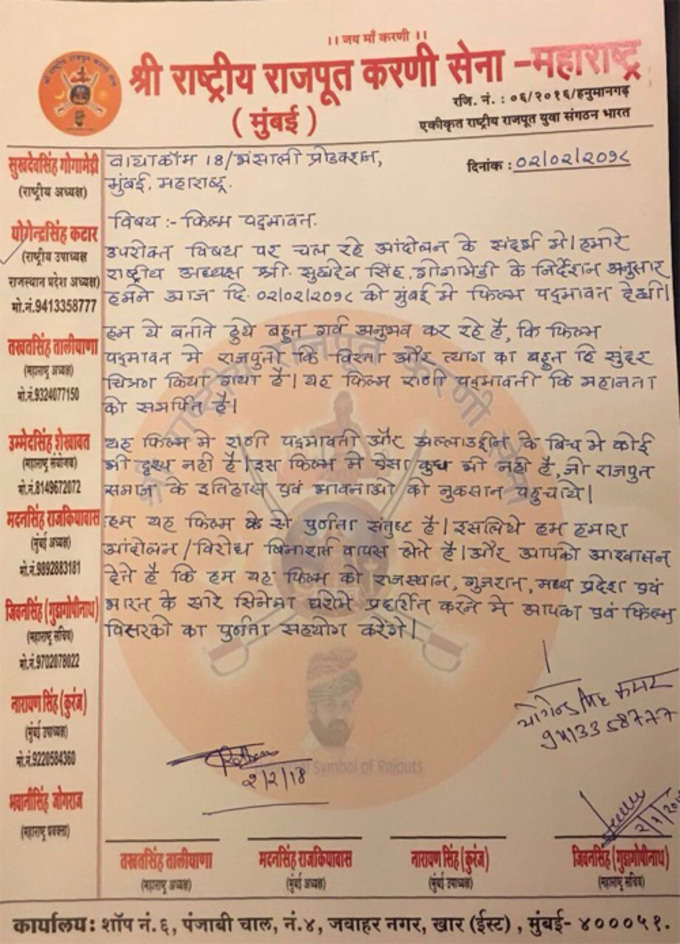 ।। जय माँ करणी ।।
श्री राष्ट्रीय राजपूत करणी सेना -महाराष्ट्र
( मुंबई )
रजि. नं. : ०६/२०१६/हनुमानगढ़
एकीकृत राष्ट्रीय राजपूत युवा संगठन भारत
सुखदेवसिंह गोगामेडी
(राष्ट्रीय अध्यक्ष)
योगेन्द्रसिंह कटार
(राष्ट्रीय उपाध्यक्ष
राजस्थान प्रदेश अध्यक्ष)
मो.नं.9413358777
तखतसिंह तालीयाणा
(महाराष्ट्र अध्यक्ष)
मो.नं.9324077150
उम्मेदसिंह शेखावत
(महाराष्ट्र संयोजक)
मो.नं.8149672072
मदनसिंह राजकियावास
(मुंबई अध्यक्ष)
मो.नं.9892883181
जिवनसिंह (गुडागोपीनाथ)
(महाराष्ट्र सचिव)
मो.नं.9702078022
नारायण सिंह (कुरंज)
(मुंबई उपाध्यक्ष)
मो.नं.9220584360
भवानीसिंह जोगराज
(महाराष्ट्र प्रवक्ता)
वायाकॉम 18/भंसाली प्रोडक्शन,
मुंबई. महाराष्ट्र.
दिनांक : ०२/०२/२०१८
विषय :- फिल्म पद्मावत.
उपरोक्त विषय पर चल रहे आंदोलन के संदर्भ में। हमारे
राष्ट्रीय अध्यक्ष श्री. सुखदेव सिंह गोगामेडी के निर्देशन अनुसार
हमने आज दि. ०२/०२/२०१८ को मुंबई मे फिल्म पद्मावत देखी।
हम ये बताते हुये बहुत गर्व अनुभव कर रहे है, कि फिल्म
पद्मावत मे राजपुतो कि विरता और त्याग का बहुत हि सुंदर
चित्रण किया गया है। यह फिल्म राणी पद्मावती कि महानता
को समर्पित है।
यह फिल्म मे राणी पद्मावती और अल्लाउद्दीन के बिच मे कोई
भी दृश्य नही है। इस फिल्म मे ऐसा कुछ भी नही है, जो राजपुत
समाज के इतिहास एवं भावनाओ को नुकसान पहुचाये।
हम यह फिल्म से पुर्णता संतुष्ट है। इसलिये हम हमारा
आंदोलन/विरोध बिनाशर्त वापस लेते है। और आपको आश्वासन
देते है कि हम यह फिल्म को राजस्थान, गुजरात, मध्य प्रदेश एवं
भारत के सारे सिनेमा घरोमे प्रदर्शित करने मे आपका एवं फिल्म
वितरको का पुर्णता सहयोग करेंगे।
योगेन्द्र सिंह कटार
9413358777
2/2/18
Symbol of Rajputs
तखतसिंह तालीयाणा
(महाराष्ट्र अध्यक्ष)
मदनसिंह राजकियावास
(मुंबई अध्यक्ष)
नारायण सिंह (कुरंज)
(मुंबई उपाध्यक्ष)
जिवनसिंह (गुडागोपीनाथ)
(महाराष्ट्र सचिव)
कार्यालय: शॉप नं.६, पंजाबी चाल, नं.४, जवाहर नगर, खार (ईस्ट) , मुंबई- ४०००५१.